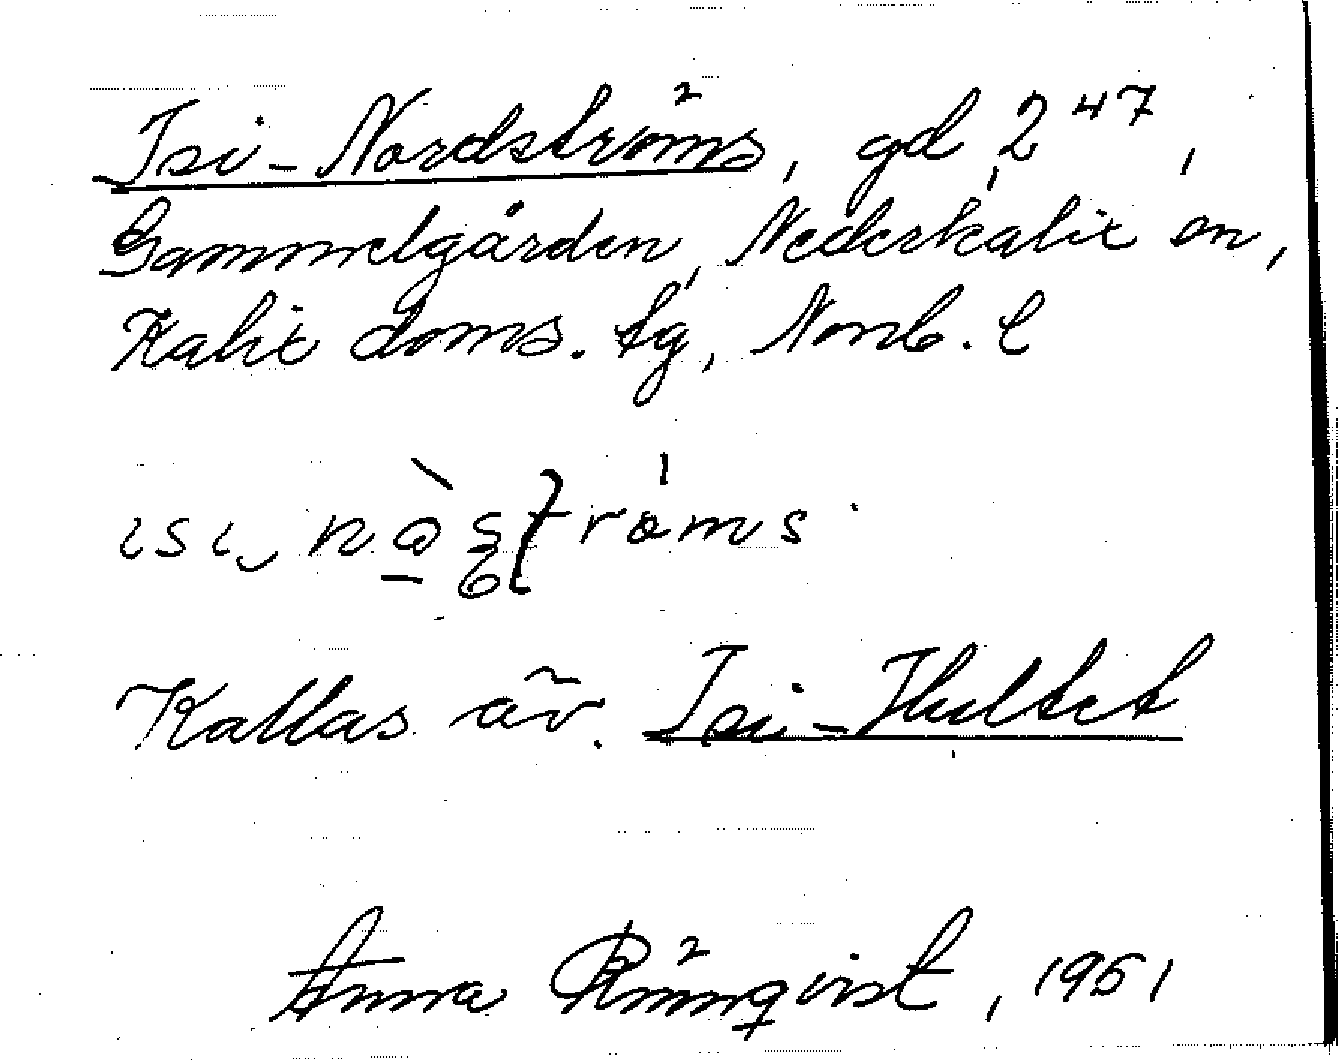 Isi-Nordströms, gd 2⁴⁷,
Gammelgården, Nederkalix sn,
Kalix doms. tg, Norrb. l
Kallas äv. Isi-Hultet
Anna Rönnqvist, 1961